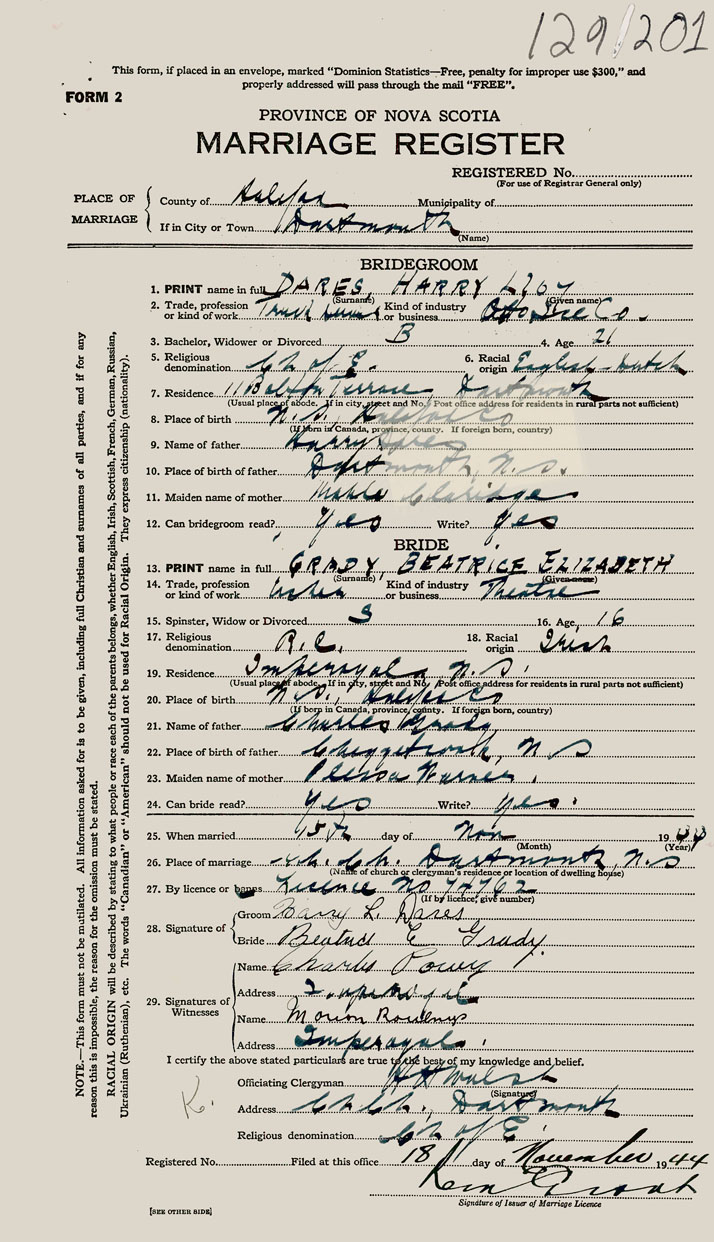 129/201
This form, if placed in an envelope, marked "Dominion Statistics—Free, penalty for improper use $300," and
properly addressed will pass through the mail "FREE".
FORM 2
PROVINCE OF NOVA SCOTIA
MARRIAGE REGISTER
REGISTERED No.
(For use of Registrar General only)
PLACE OF MARRIAGE
County of Halifax Municipality of
If in City or Town Dartmouth
(Name)
BRIDEGROOM
1. PRINT name in full DARES, HARRY
(Surname) (Given name)
2. Trade, profession or kind of work Truck Kind of industry or business Co.
3. Bachelor, Widower or Divorced B 4. Age 21
5. Religious denomination Ch of E. 6. Racial origin English - Dutch
7. Residence 11 Terrace Dartmouth
(Usual place of abode. If in city, street and No. Post office address for residents in rural parts not sufficient)
8. Place of birth N.S., Halifax Co
(If born in Canada, province, county. If foreign born, country)
9. Name of father Harry Dares
10. Place of birth of father Dartmouth, N.S.
11. Maiden name of mother Claridge
12. Can bridegroom read? Yes Write? Yes
BRIDE
13. PRINT name in full GRADY, BEATRICE ELIZABETH
(Surname) (Given name)
14. Trade, profession or kind of work Usher Kind of industry or business Theatre
15. Spinster, Widow or Divorced S 16. Age 16
17. Religious denomination R.C. 18. Racial origin Irish
19. Residence Imperoyal, N.S.
(Usual place of abode. If in city, street and No. Post office address for residents in rural parts not sufficient)
20. Place of birth N.S., Halifax Co
(If born in Canada, province/county. If foreign born, country)
21. Name of father Charles Grady
22. Place of birth of father N S
23. Maiden name of mother
24. Can bride read? Yes Write? Yes.
25. When married 15th day of Nov 1944
(Month) (Year)
26. Place of marriage Ch. Ch. Dartmouth, N.S
(Name of church or clergyman's residence or location of dwelling house)
27. By licence or banns Licence No 74762
(If by licence, give number)
28. Signature of
Groom Harry L. Dares
Bride Beatrice E Grady.
29. Signatures of Witnesses
Name Charles
Address Imperoyal
Name Marion
Address Imperoyal.
I certify the above stated particulars are true to the best of my knowledge and belief.
Officiating Clergyman Walsh
(Signature)
Address Ch Ch., Dartmouth
Religious denomination Ch of E.
K.
Registered No. Filed at this office 18 day of November 1944
Signature of Issuer of Marriage Licence
[SEE OTHER SIDE]
NOTE.—This form must not be mutilated. All information asked for is to be given, including full Christian and surnames of all parties, and if for any
reason this is impossible, the reason for the omission must be stated.
RACIAL ORIGIN will be described by stating to what people or race each of the parents belongs, whether English, Irish, Scottish, French, German, Russian,
Ukrainian (Ruthenian), etc. The words "Canadian" or "American" should not be used for Racial Origin. They express citizenship (nationality).